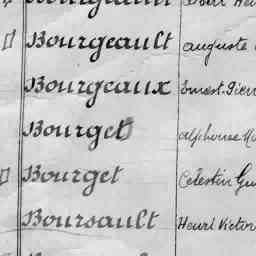 Bourgeault auguste
Bourgeaux Ernest Pierr
Bourget alphonse
Bourget Célestin Gus
Boursault Henri Victor